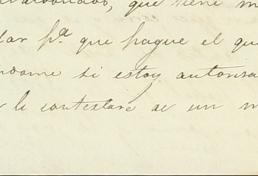 que tiene m
lar pª que pague el qu
ndome si estoy autoriza
le contestaré de un m